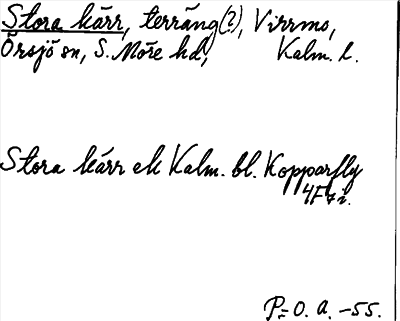 Stora kärr, terräng(?), Virrmo,
Örsjö sn, S. Möre hd, Kalm. l.
Stora kärr ek Kalm. bl. Kopparfly
4F7i.
P.O.A. -55.